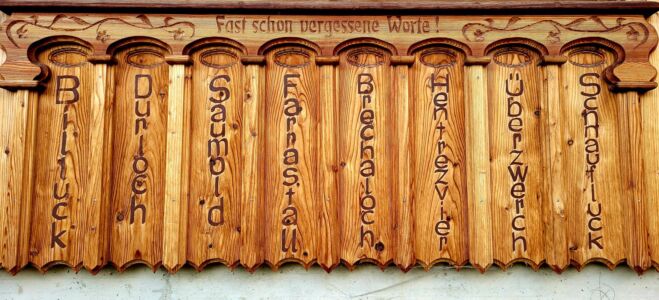 Fast schon vergessene Worte!
Billluck
Durloch
Saumold
Farrastall
Brechaloch
Hentrezvier
Überzwerch
Schaufluck